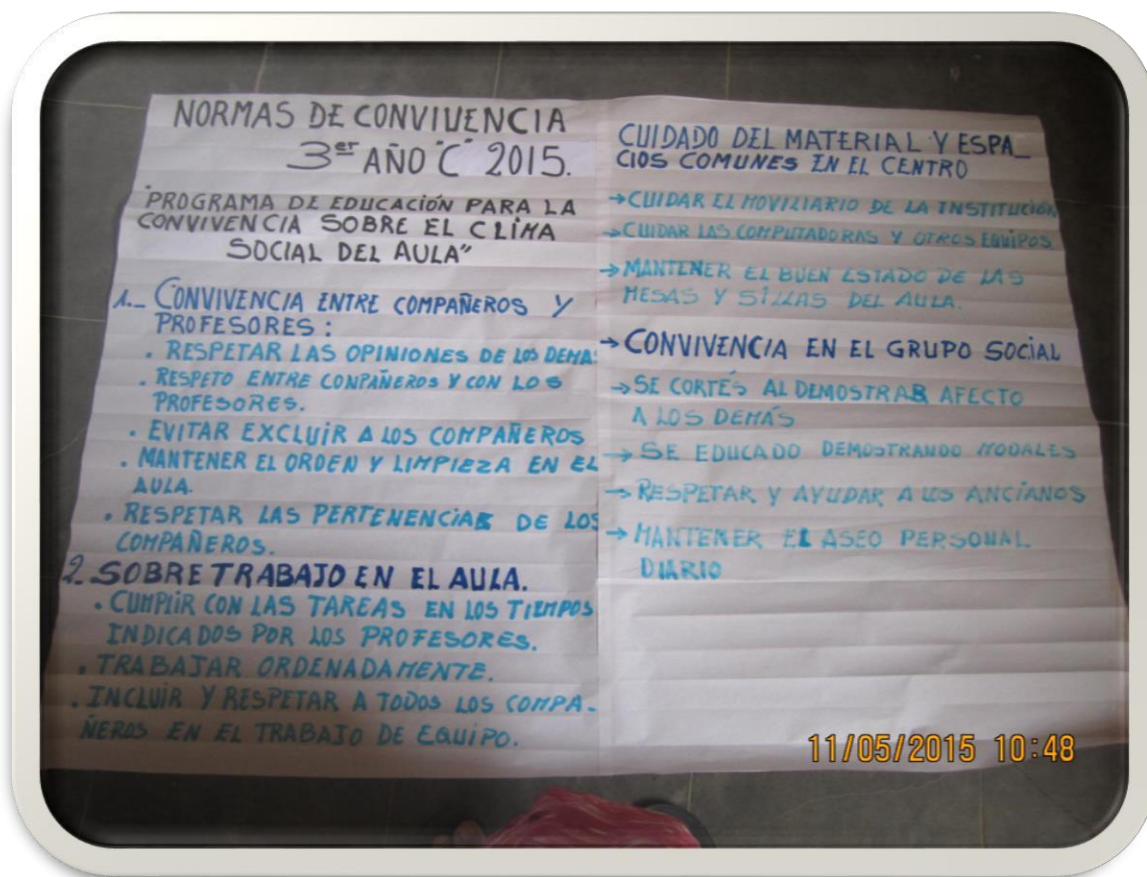 NORMAS DE CONVIVENCIA
3er AÑO "C" 2015.
"PROGRAMA DE EDUCACIÓN PARA LA
CONVIVENCIA SOBRE EL CLIMA
SOCIAL DEL AULA"
1._ CONVIVENCIA ENTRE COMPAÑEROS Y
PROFESORES:
. RESPETAR LAS OPINIONES DE LOS DEMA
. RESPETO ENTRE CONPAÑEROS Y CON LOS
PROFESORES.
. EVITAR EXCLUIR A LOS COMPAÑEROS
. MANTENER EL ORDEN Y LIMPIEZA EN EL
AULA.
. RESPETAR LAS PERTENENCIAS DE LOS
COMPAÑEROS.
2. SOBRE TRABAJO EN EL AULA.
. CUMPLIR CON LAS TAREAS EN LOS TIEMPOS
INDICADOS POR LOS PROFESORES.
. TRABAJAR ORDENADAMENTE.
. INCLUIR Y RESPETAR A TODOS LOS COMPA-
ÑEROS EN EL TRABAJO DE EQUIPO.
CUIDADO DEL MATERIAL Y ESPA_
CIOS COMUNES EN EL CENTRO
→ CUIDAR EL MOVILIARIO DE LA INSTITUCIÓN
→ CUIDAR LAS COMPUTADORAS Y OTROS EQUIPOS
→ MANTENER EL BUEN ESTADO DE LAS
MESAS Y SILLAS DEL AULA.
→ CONVIVENCIA EN EL GRUPO SOCIAL
→ SE CORTÉS AL DEMOSTRAR AFECTO
A LOS DEMÁS
→ SE EDUCADO DEMOSTRANDO MODALES
→ RESPETAR Y AYUDAR A LOS ANCIANOS
→ MANTENER EL ASEO PERSONAL
DIARIO
11/05/2015 10:48